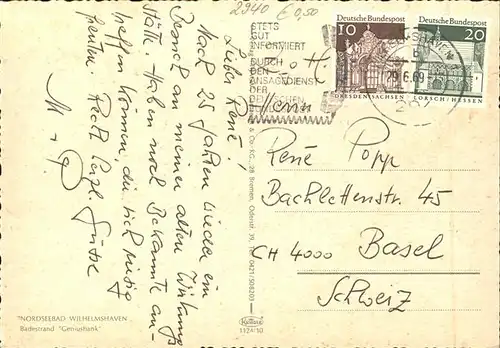 2940 € 0,50
STETS
GUT
INFORMIERT
DURCH
DEN
ANSAGEDIENST
DER
DEUTSCHEN
Deutsche Bundespost
10
DRESDEN/SACHSEN
Deutsche Bundespost
20
LORSCH/HESSEN
29.6.69
Lieber René!
Nach 25 Jahren wieder ein
Besuch an meiner alten Wirkungs
stätte. Haben noch Bekannte an-
treffen können, die sich riesig
freuten. Recht herzl. Grüsse
M + P
Herrn
René Popp
Bachlettenstr. 45
CH 4000 Basel
Schweiz
28 Bremen, Odenstr. 39, Tel. 0421/508203
"NORDSEEBAD WILHELMSHAVEN
Badestrand "Geniusbank"
1124/10